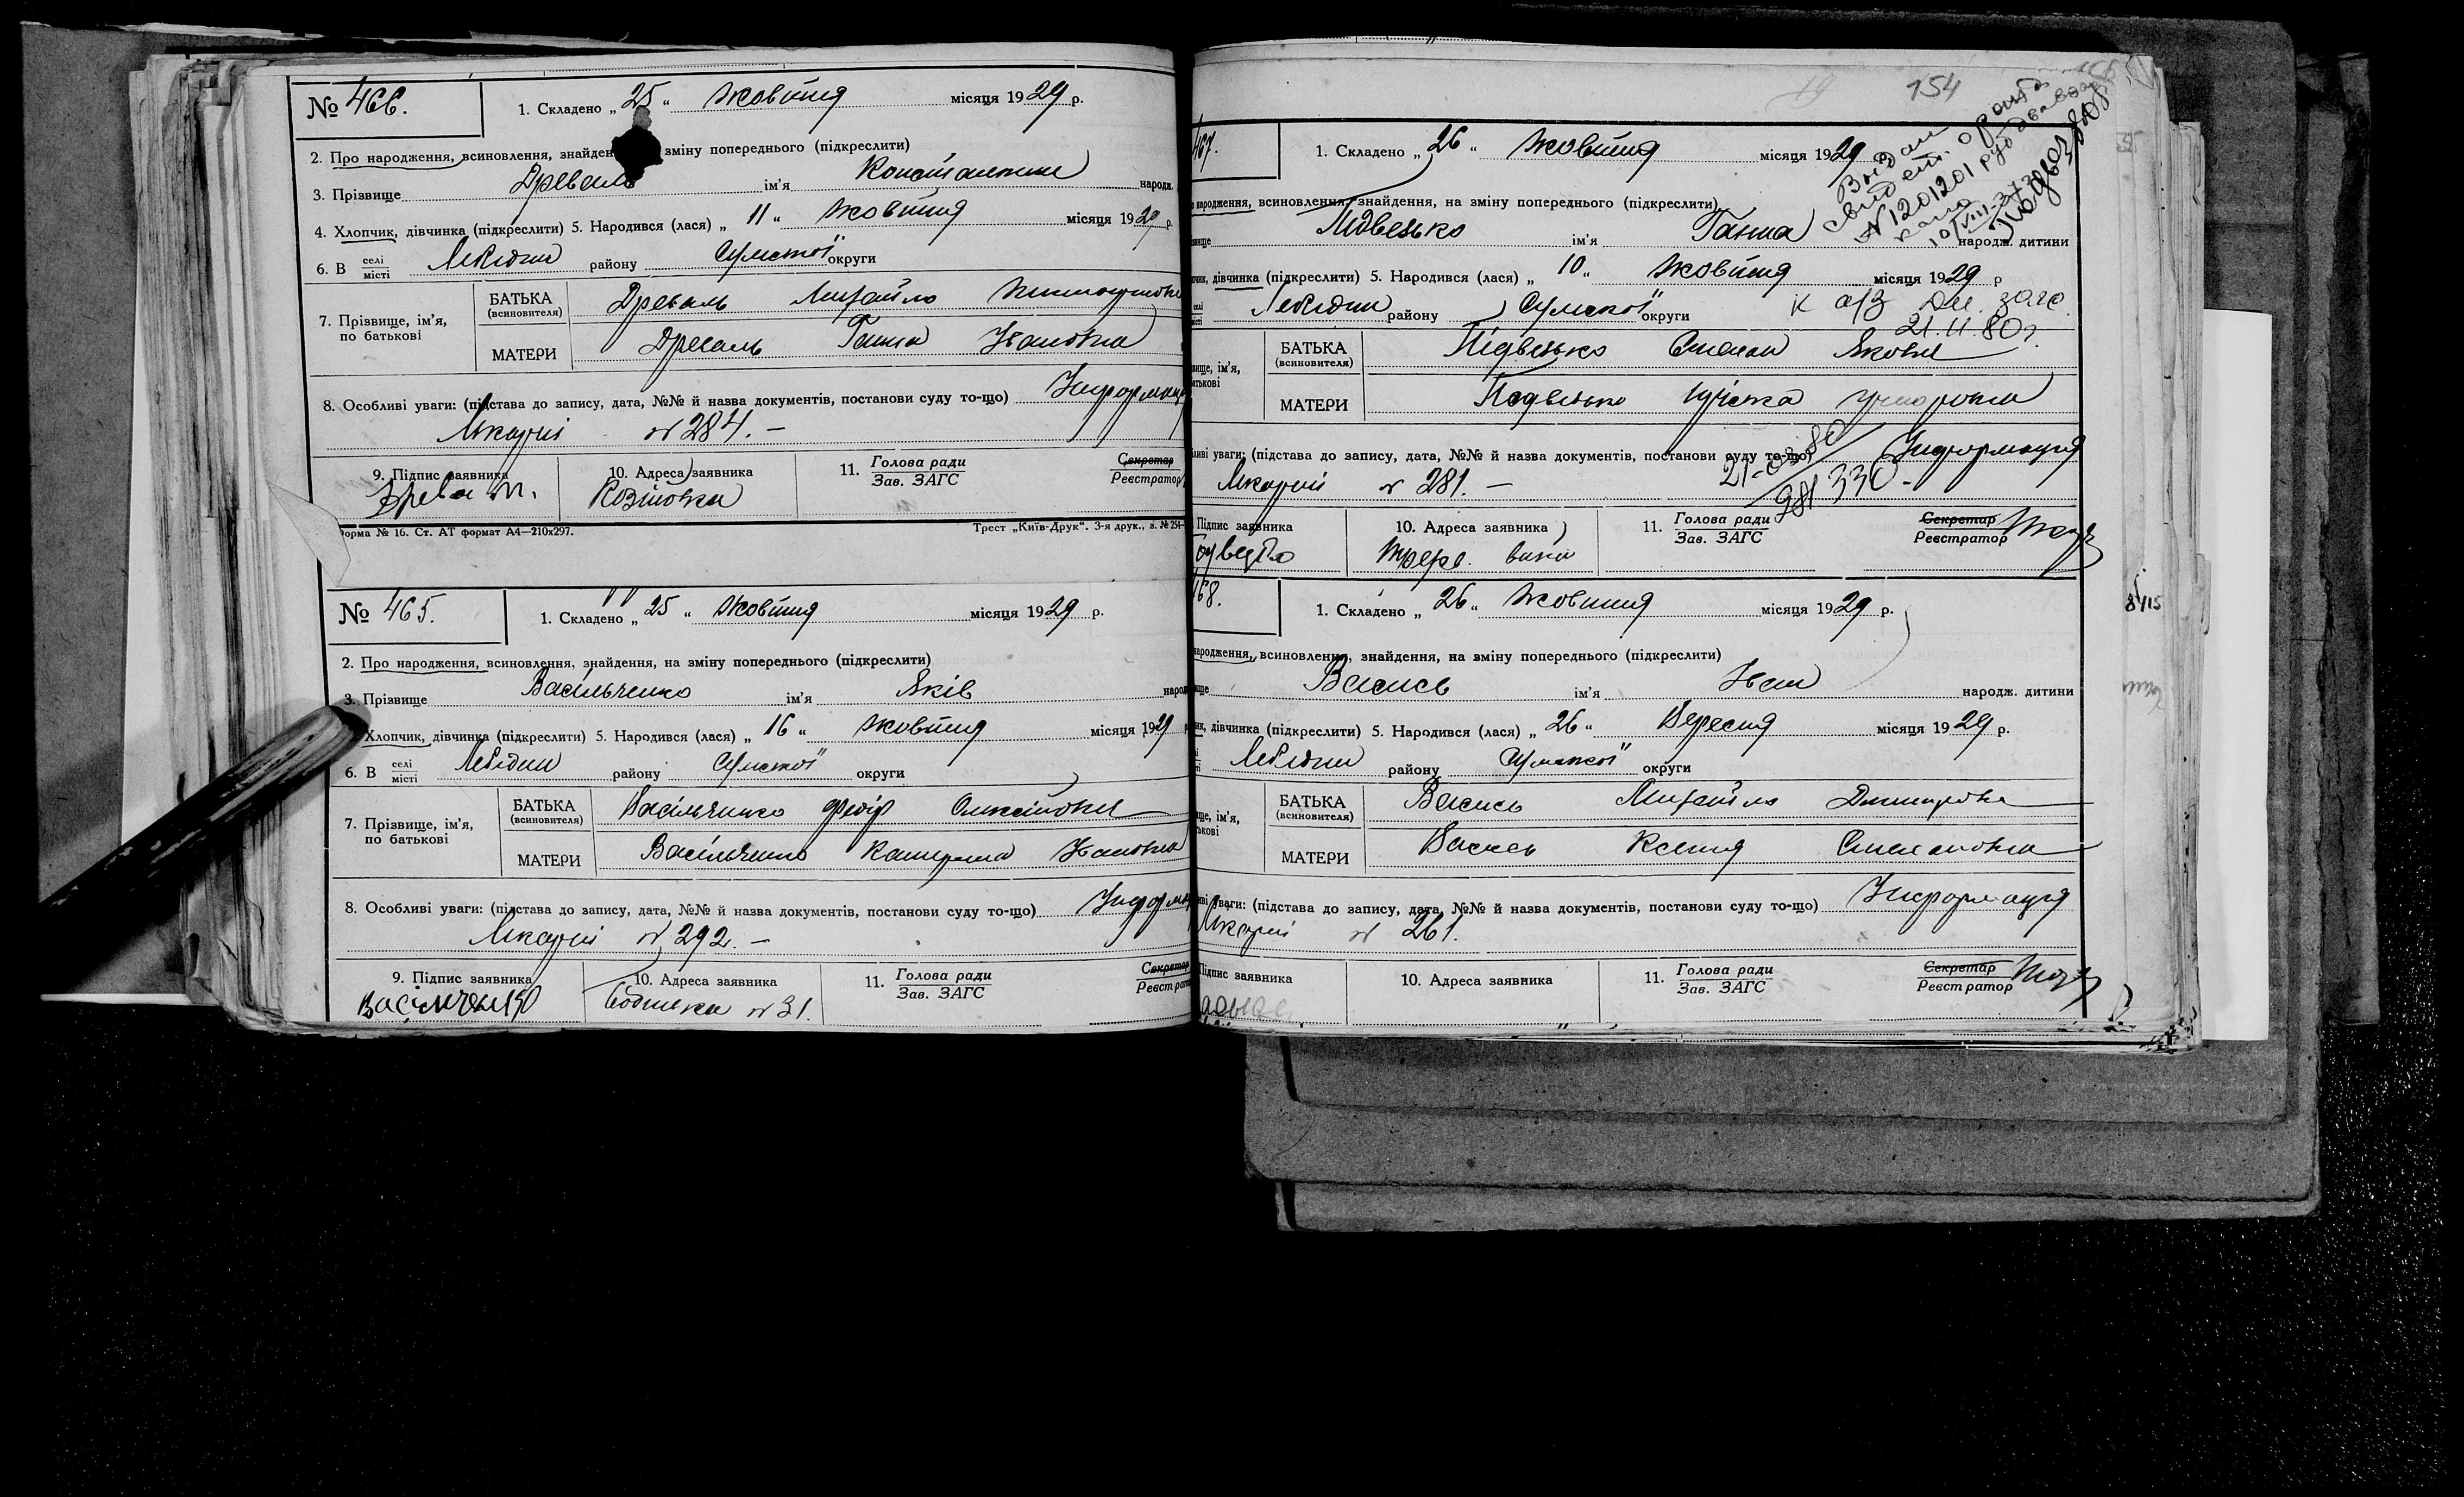 № 466.
1. Складено „ 25 “ Жовтня місяця 1929 р.
2. Про народження, всиновлення, знайден зміну попереднього (підкреслити)
3. Прізвище Древаль ім'я Константин народж.
4. Хлопчик, дівчинка (підкреслити) 5. Народився (лася) „ 11 “ Жовтня місяця 1929 р.
6. В селі місті Лебідин району Сумської округи
7. Прізвище, ім'я, по батькові
БАТЬКА (всиновителя) Древаль Михайло
МАТЕРИ Древаль Ганна Ивановна
8. Особливі уваги: (підстава до запису, дата, №№ й назва документів, постанови суду то-що) Информац
Лікарні № 284. —
9. Підпис заявника
10. Адреса заявника
11. Голова ради Зав. ЗАГС
Секретар Реєстратор
Форма № 16. Ст. АТ формат А4—210х297.
Трест „Київ-Друк“. 3-я друк., з. № 254—
№ 465.
1. Складено „ 25 “ Жовтня місяця 1929 р.
2. Про народження, всиновлення, знайдення, на зміну попереднього (підкреслити)
3. Прізвище Васільченко ім'я Яків народ
Хлопчик, дівчинка (підкреслити) 5. Народився (лася) „ 16 “ Жовтня місяця 1929 р
6. В селі місті Лебідин району Сумської округи
7. Прізвище, ім'я, по батькові
БАТЬКА (всиновителя) Васільченко Федір Олексійович
МАТЕРИ Васільченко Катерина Ивановна
8. Особливі уваги: (підстава до запису, дата, №№ й назва документів, постанови суду то-що) Информ
Лікарні № 292. —
9. Підпис заявника Васільченко
10. Адреса заявника № 31.
11. Голова ради Зав. ЗАГС
Секретар Реєстрато
154
467.
1. Складено „ 26 “ Жовтня місяця 1929 р.
Выдан
свидет.
№ 1201201
народження, всиновлення, знайдення, на зміну попереднього (підкреслити)
звище Підвезько ім'я Ганна народж. дитини
пчик, дівчинка (підкреслити) 5. Народився (лася) „ 10 “ Жовтня місяця 1929 р
селі місті Лебідин району Сумської округи
21.11.80г.
вище, ім'я, батькові
БАТЬКА (всиновителя) Підвезько Степан Якович
МАТЕРИ Педвезько
ливі уваги: (підстава до запису, дата, №№ й назва документів, постанови суду то-що) Информация
Лікарні № 281. —
Підпис заявника
10. Адреса заявника
11. Голова ради Зав. ЗАГС
Секретар Реєстратор
468.
1. Складено „ 26 “ Жовтня місяця 1929 р.
народження, всиновлення, знайдення, на зміну попереднього (підкреслити)
ище Васись ім'я Иван народж. дитини
ик, дівчинка (підкреслити) 5. Народився (лася) „ 26 “ Вересня місяця 1929 р.
Лебідин району Сумської округи
ище, ім'я, тькові
БАТЬКА (всиновителя) Васись Михайло Дмитрович
МАТЕРИ Васись Ксения Степановна
иві уваги: (підстава до запису, дата, №№ й назва документів, постанови суду то-що) Информация
Лікарні № 261.
Підпис заявника
10. Адреса заявника
11. Голова ради Зав. ЗАГС
Секретар Реєстратор